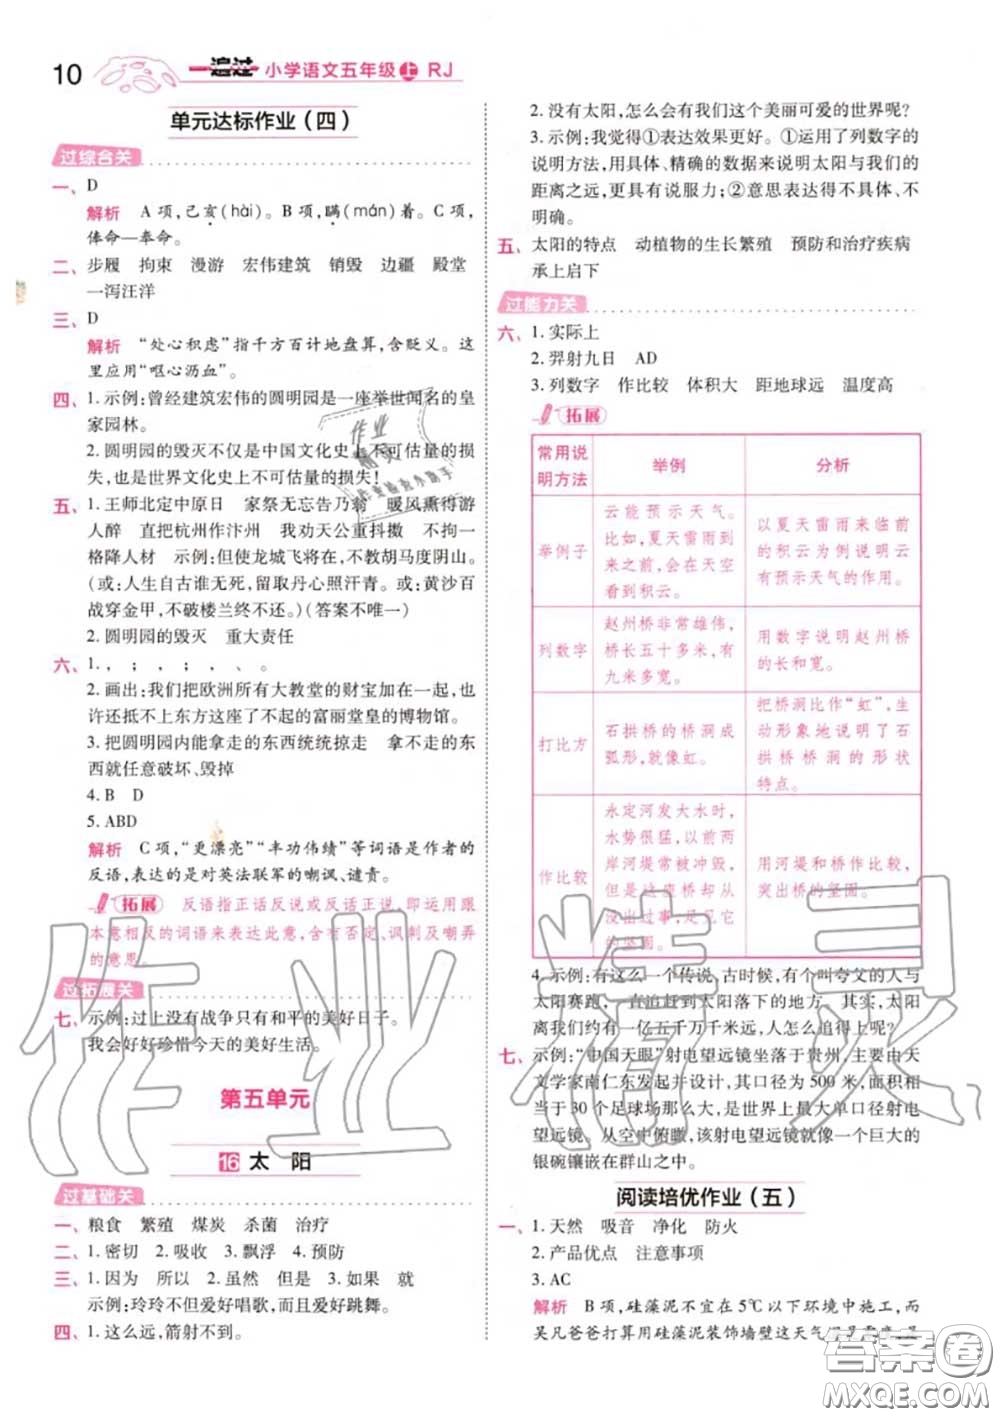 10 一遍过 小学语文五年级上 RJ
单元达标作业（四）
过综合关
一、 D
解析 A 项，已亥（hài）。B 项，瞒（mán）着。C 项，
俸命—奉命。
二、 步履 拘束 漫游 宏伟建筑 销毁 边疆 殿堂
一泻汪洋
三、 D
解析 “处心积虑”指千方百计地盘算，含贬义。这
里应用“呕心沥血”。
四、 1. 示例：曾经建筑宏伟的圆明园是一座举世闻名的皇
家园林。
2. 圆明园的毁灭不仅是中国文化史上不可估量的损
失，也是世界文化史上不可估量的损失！
五、 1. 王师北定中原日 家祭无忘告乃翁 暖风熏得游
人醉 直把杭州作汴州 我劝天公重抖擞 不拘一
格降人材 示例：但使龙城飞将在，不教胡马度阴山。
（或：人生自古谁无死，留取丹心照汗青。或：黄沙百
战穿金甲，不破楼兰终不还。）（答案不唯一）
2. 圆明园的毁灭 重大责任
六、 1. ， ； ， ； ， 、 。
2. 画出：我们把欧洲所有大教堂的财宝加在一起，也
许还抵不上东方这座了不起的富丽堂皇的博物馆。
3. 把圆明园内能拿走的东西统统掠走 拿不走的东
西就任意破坏、毁掉
4. B D
5. ABD
解析 C 项，“更漂亮”“丰功伟绩”等词语是作者的
反语，表达的是对英法联军的嘲讽、谴责。
拓展 反语指正话反说或反话正说，即运用跟
本意相反的词语来表达此意，含有否定、讽刺及嘲弄
的意思。
过拓展关
七、 示例：过上没有战争只有和平的美好日子。
我会好好珍惜今天的美好生活。
第五单元
16 太 阳
过基础关
一、 粮食 繁殖 煤炭 杀菌 治疗
二、 1. 密切 2. 吸收 3. 飘浮 4. 预防
三、 1. 因为 所以 2. 虽然 但是 3. 如果 就
示例：玲玲不但爱好唱歌，而且爱好跳舞。
四、 1. 这么远，箭射不到。
2. 没有太阳，怎么会有我们这个美丽可爱的世界呢？
3. 示例：我觉得①表达效果更好。①运用了列数字的
说明方法，用具体、精确的数据来说明太阳与我们的
距离之远，更具有说服力；②意思表达得不具体、不
明确。
五、 太阳的特点 动植物的生长繁殖 预防和治疗疾病
承上启下
过能力关
六、 1. 实际上
2. 羿射九日 AD
3. 列数字 作比较 体积大 距地球远 温度高
拓展
常用说
明方法 举例 分析
举例子
云能预示天气。
比如，夏天雷雨到
来之前，会在天空
看到积云。
以夏天雷雨来临前
的积云为例说明云
有预示天气的作用。
列数字
赵州桥非常雄伟，
桥长五十多米，有
九米多宽。
用数字说明赵州桥
的长和宽。
打比方
石拱桥的桥洞成
弧形，就像虹。
把桥洞比作“虹”，生
动形象地说明了石
拱桥桥洞的形状
特点。
作比较
永定河发大水时，
水势很猛，以前两
岸河堤常被冲毁，
但是这座桥却从
没出过事，足见它
的坚固。
用河堤和桥作比较，
突出桥的坚固。
4. 示例：有这么一个传说，古时候，有个叫夸父的人与
太阳赛跑，一直追赶到太阳落下的地方。其实，太阳
离我们约有一亿五千万千米远，人怎么追得上呢？
七、 示例：“中国天眼”射电望远镜坐落于贵州，主要由天
文学家南仁东发起并设计，其口径为 500 米，面积相
当于 30 个足球场那么大，是世界上最大单口径射电
望远镜。从空中俯瞰，该射电望远镜就像一个巨大的
银碗镶嵌在群山之中。
阅读培优作业（五）
一、 1. 天然 吸音 净化 防火
2. 产品优点 注意事项
3. AC
解析 B 项，硅藻泥不宜在 5℃以下环境中施工，而
吴凡爸爸打算用硅藻泥装饰墙壁这天气温是零度，是
作业精灵
答案圈
MXQE.COM